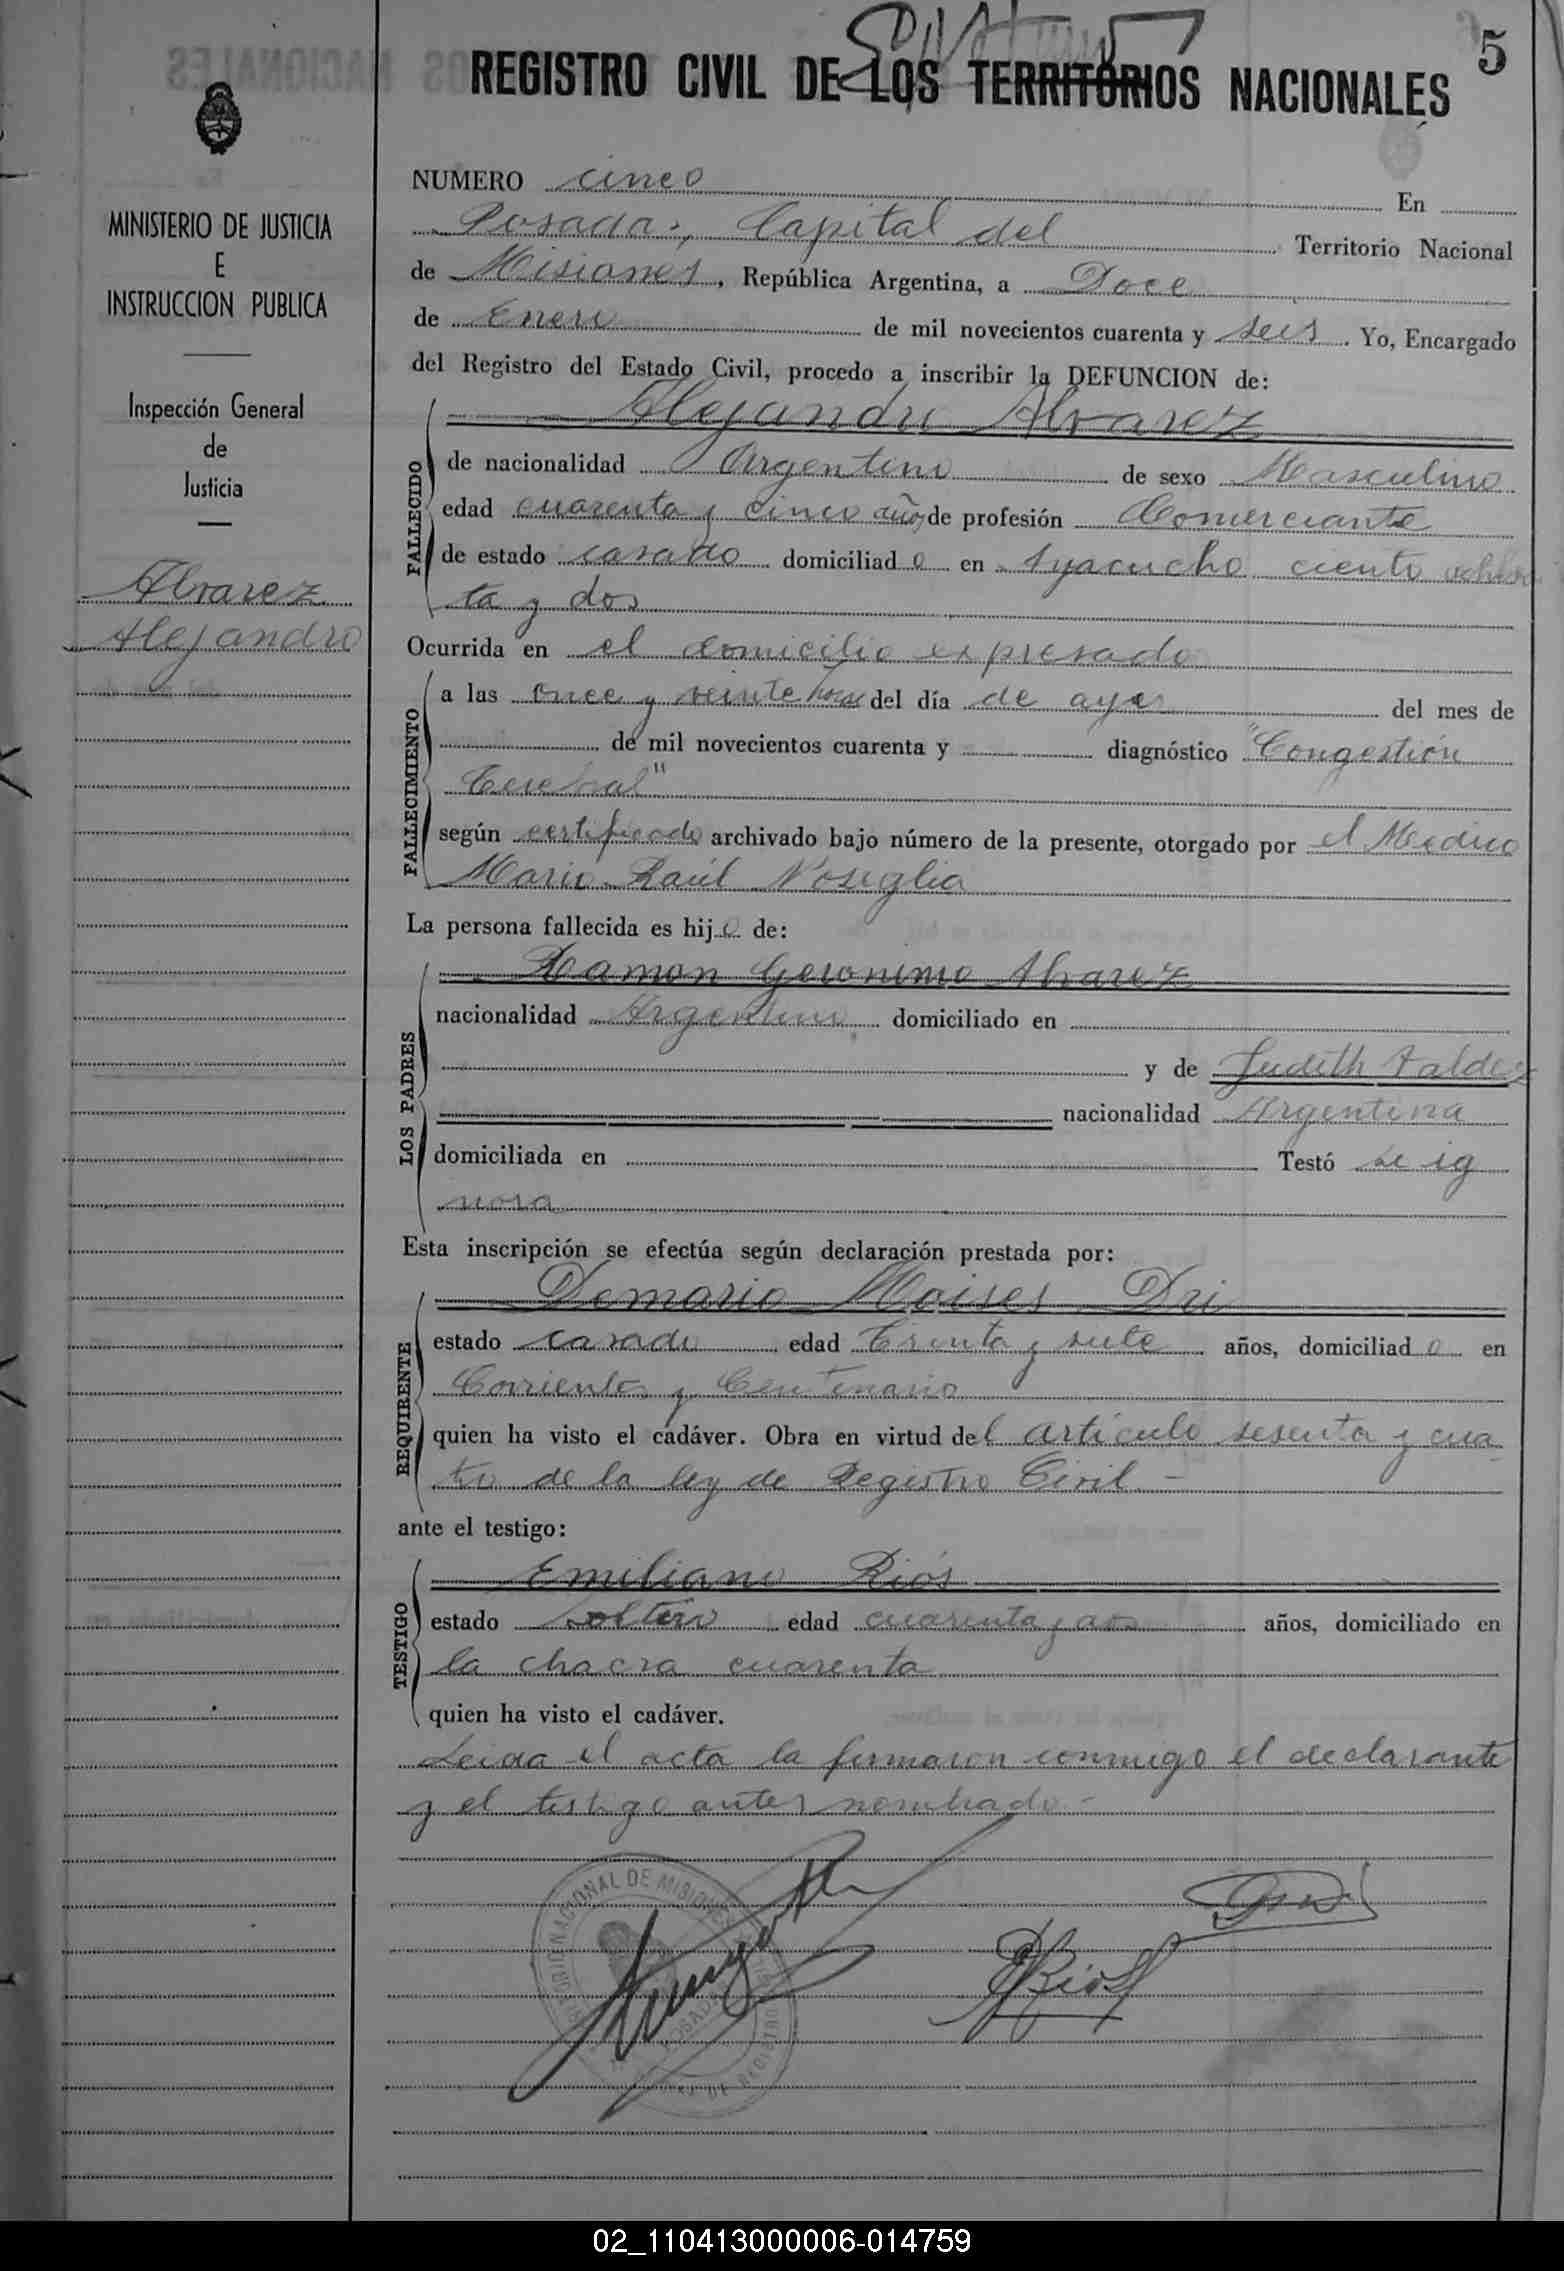 5
REGISTRO CIVIL DE LOS TERRITORIOS NACIONALES
MINISTERIO DE JUSTICIA
E
INSTRUCCION PUBLICA
Inspección General
de
Justicia
Alvarez
Alejandro
NUMERO cinco En
Posadas, Capital del Territorio Nacional
de Misiones, República Argentina, a Doce
de Enero de mil novecientos cuarenta y seis. Yo, Encargado
del Registro del Estado Civil, procedo a inscribir la DEFUNCION de:
Alejandro Alvarez
FALLECIDO
de nacionalidad Argentino de sexo Masculino
edad cuarenta y cinco años, de profesión Comerciante
de estado casado domiciliado en Ayacucho ciento ochen
ta y dos
Ocurrida en el domicilio expresado
FALLECIMIENTO
a las once y veinte horas del día de ayer del mes de
de mil novecientos cuarenta y diagnóstico "Congestión
Cerebral"
según certificado archivado bajo número de la presente, otorgado por el Medico
Mario Raúl Nosiglia
La persona fallecida es hijo de:
LOS PADRES
Ramon Geronimo Alvarez
nacionalidad Argentino domiciliado en
y de Judith Valdez
nacionalidad Argentina
domiciliada en Testó se ig
nora
Esta inscripción se efectúa según declaración prestada por:
REQUIRENTE
Demario Moises Dri
estado casado edad Treinta y siete años, domiciliado en
Corrientes y Centenario
quien ha visto el cadáver. Obra en virtud del artículo sesenta y cua
tro de la ley de Registro Civil -
ante el testigo:
TESTIGO
Emiliano Riós
estado soltero edad cuarenta y dos años, domiciliado en
la chacra cuarenta
quien ha visto el cadáver.
Leida el acta la firmaron conmigo el declarante
y el testigo antes nombrado.-
ERios
02_110413000006-014759